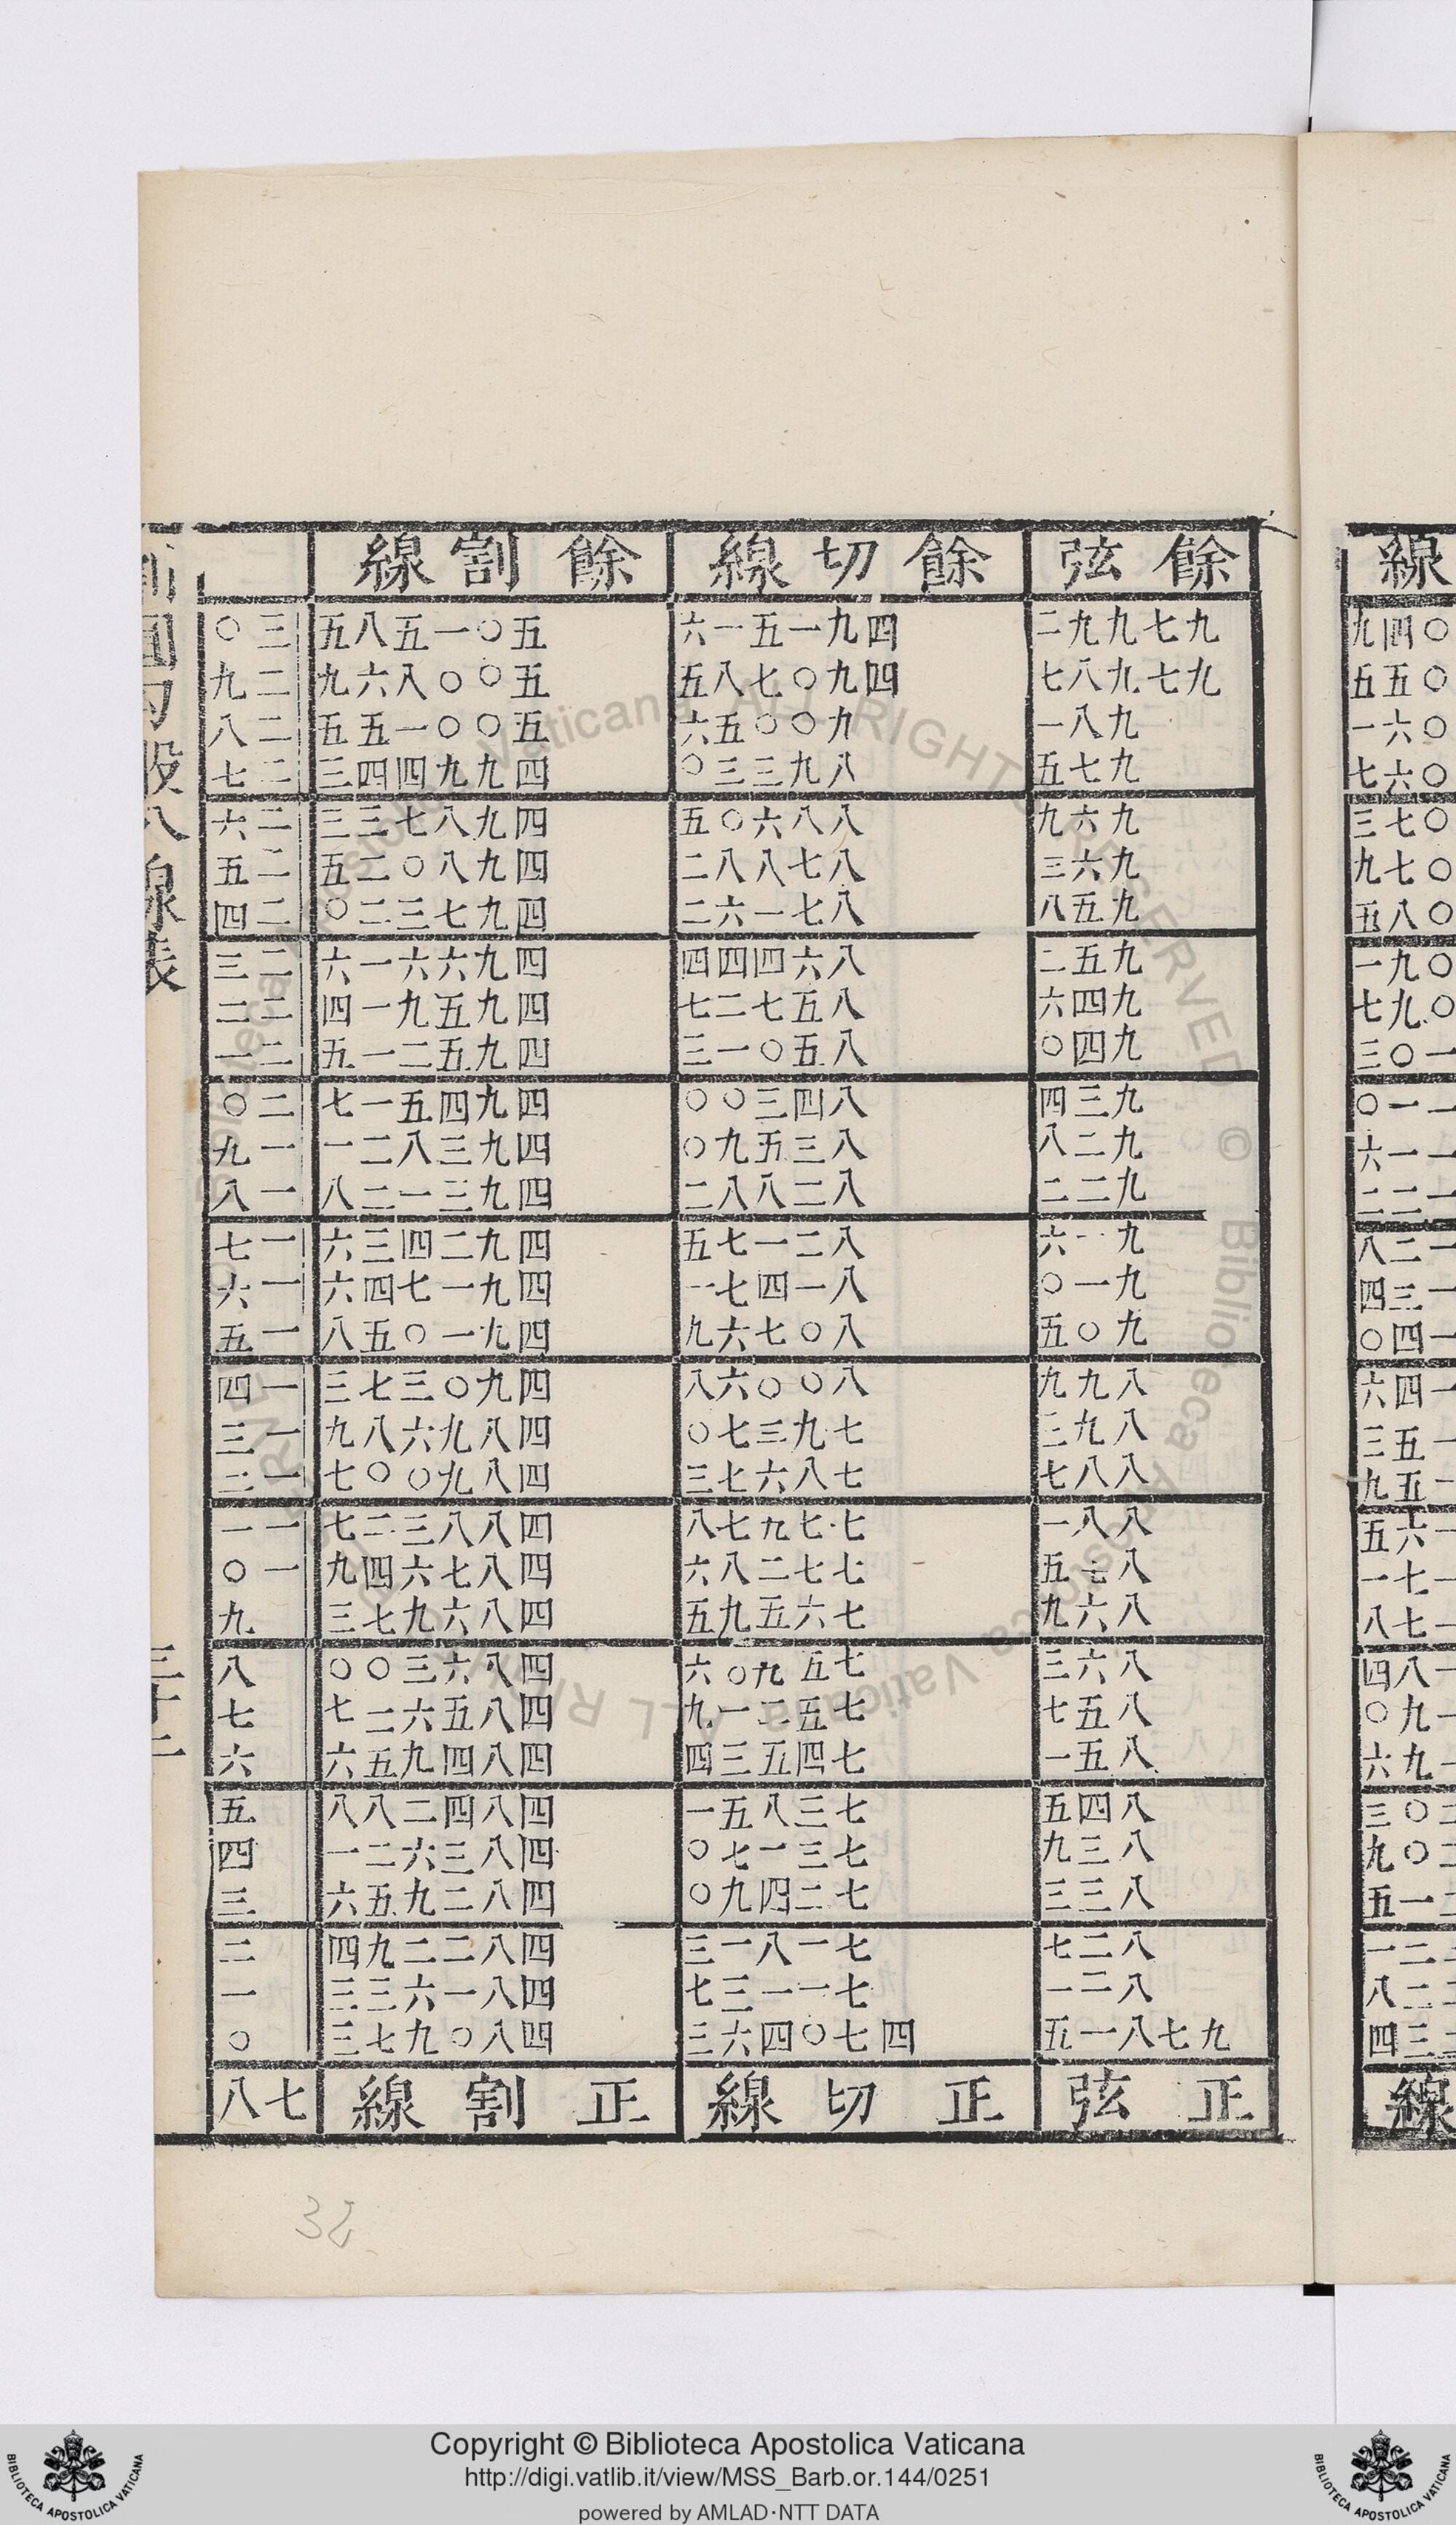 線
〇四九
〇五五
〇六一
〇六七
〇七三
〇七九
〇八五
〇九一
〇九七
一〇三
一一〇
一一六
一二二
一二八
一三四
一四〇
一四六
一五三
一五九
一六五
一七一
一七八
一八四
一九〇
一九六
二〇三
二〇九
二一五
二二一
二二八
二三四
線
餘弦 餘切線 餘割線
九七九九二 四九一五一六 五〇一五八五 三〇
九七九八七 四九〇七八五 五〇〇八六九 二九
九八一 九〇〇五六 五〇〇一五五 二八
九七五 八九三三〇 四九九四四三 二七
九六九 八八六〇五 四九八七三三 二六
九六三 八七八八二 四九八〇二五 二五
九五八 八七一六二 四九七三二〇 二四
九五二 八六四四四 四九六六一六 二三
九四六 八五七二七 四九五九一四 二二
九四〇 八五〇一三 四九五二一五 二一
九三四 八四三〇〇 四九四五一七 二〇
九二八 八三五九〇 四九三八二一 一九
九二二 八二八八二 四九三一二八 一八
九一六 八二一七五 四九二四三六 一七
九一〇 八一四七一 四九一七四六 一六
九〇五 八〇七六九 四九一〇五八 一五
八九九 八〇〇六八 四九〇三七三 一四
八九三 七九三七〇 四八九六八九 一三
八八七 七八六七三 四八九〇〇七 一二
八八一 七七九七八 四八八三二七 一一
八七五 七七二八六 四八七六四九 一〇
八六九 七六五九五 四八六九七三 九
八六三 七五九〇六 四八六三〇〇 八
八五七 七五二一九 四八五六二七 七
八五一 七四五三四 四八四九五六 六
八四五 七三八五一 四八四二八八 五
八三九 七三一七〇 四八三六二一 四
八三三 七二四九〇 四八二九五六 三
八二七 七一八一三 四八二二九四 二
八二一 七一一三七 四八一六三三 一
九七八一五 四七〇四六三 四八〇九七三 〇
正弦 正切線 正割線 七八
圓勾股八線表 三十二
32
© Biblioteca Apostolica Vaticana ALL RIGHTS RESERVED
Copyright © Biblioteca Apostolica Vaticana
http://digi.vatlib.it/view/MSS_Barb.or.144/0251
powered by AMLAD·NTT DATA
BIBLIOTECA APOSTOLICA VATICANA
BIBLIOTECA APOSTOLICA VATICANA